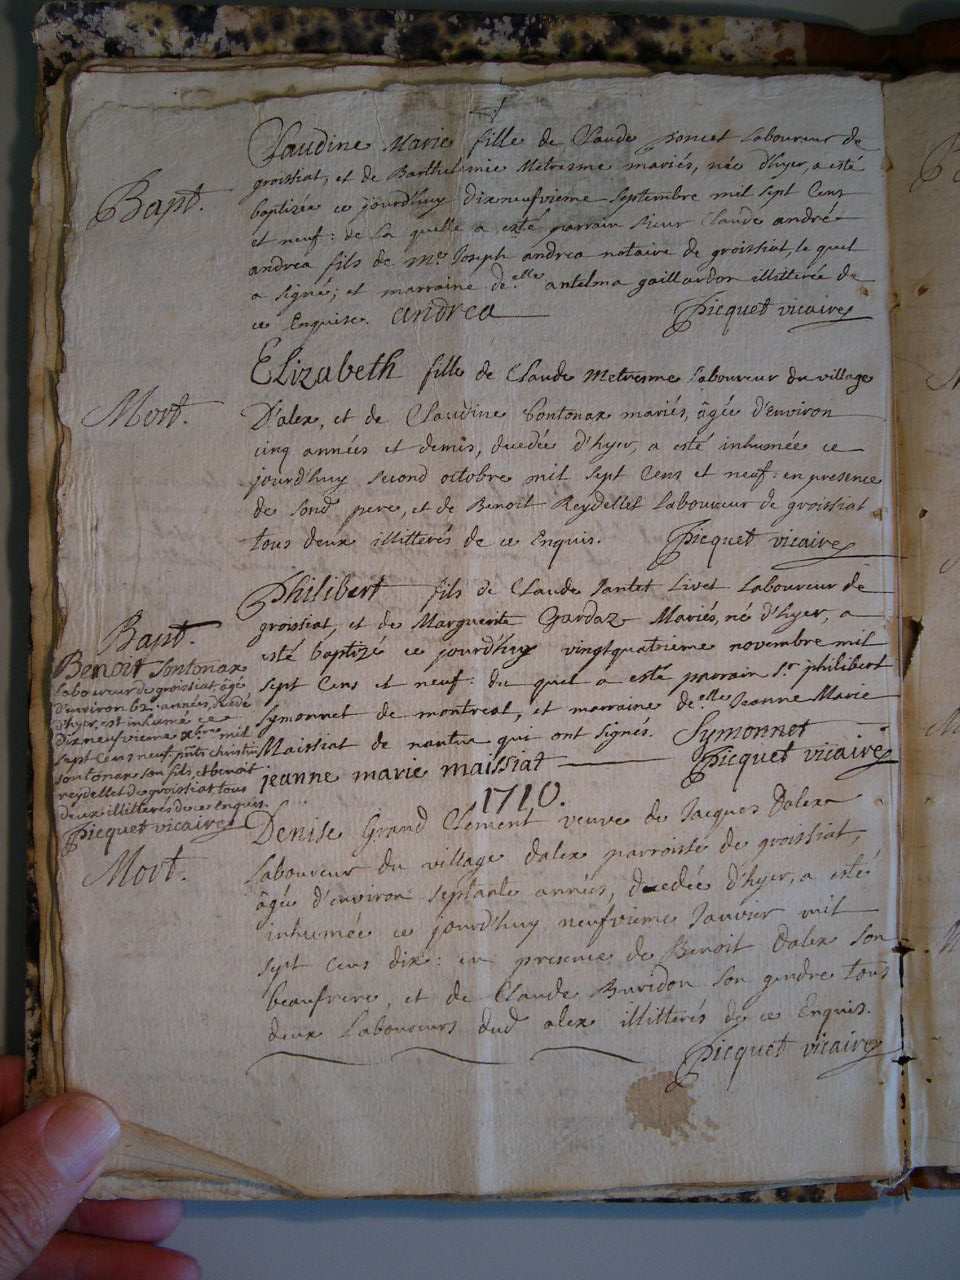 Bapt.
Claudine Marie fille de Claude poncet laboureur de
groissiat, et de Barthelemie Metresme mariés, née d'hyer, a esté
baptizée ce jourd'huy dixneufvieme septembre mil sept Cens
et neuf: de la quelle a esté parrain sieur Claude andré
andrea fils de me. Joseph andrea notaire de groissiat, le quel
a signé; et marraine de.elle antelma gaillardon illitterée de
ce Enquise. andrea Picquet vicaire
Mort.
Elizabeth fille de Claude Metresme laboureur du village
D'alex, et de Claudine Sontonax mariés, âgée d'environ
cinq années et demis, decedée d'hyer, a esté inhumée ce
jourd'huy second octobre mil sept Cens et neuf: en presence
de sond pere, et de Benoit Reydellet laboureur de groissiat
tous deux illitterés de ce Enquis. Picquet vicaire
Bapt.
Philibert fils de Claude Jantet Livet laboureur de
groissiat, et de Marguerite Gardaz Mariés, né d'hyer, a
esté baptizé ce jourd'huy vingtquatrieme novembre mil
sept Cens et neuf: du quel a esté parrain sr. philibert
Symonnet de montreal, et marraine de.elle Jeanne Marie
Maissiat de nantua qui ont signés. Symonnet
jeanne marie maissiat Picquet vicaire
Benoit Sontonax
laboureur de groissiat, âgé
d'environ 62. années,
d'hyer, est inhumé ce
dixneufvieme xbre. mil
sept Cens neuf, pnts christin
sontonax son fils, et benoit
reydellet de groissiat tous
deux illitterés de ce Enquis.
Picquet vicaire
1710.
Mort.
Denise Grand Clement veuve de Jacques Dalex
laboureur du village dalex parroisse de groissiat,
âgée d'environ septante années, decedée d'hyer, a esté
inhumée ce jourd'huy neufvieme Janvier mil
sept Cens dix: en presence de Benoit Dalex son
beaufrere, et de Claude Buridon son gendre tous
deux laboureurs dud alex illitterés de ce Enquis.
Picquet vicaire